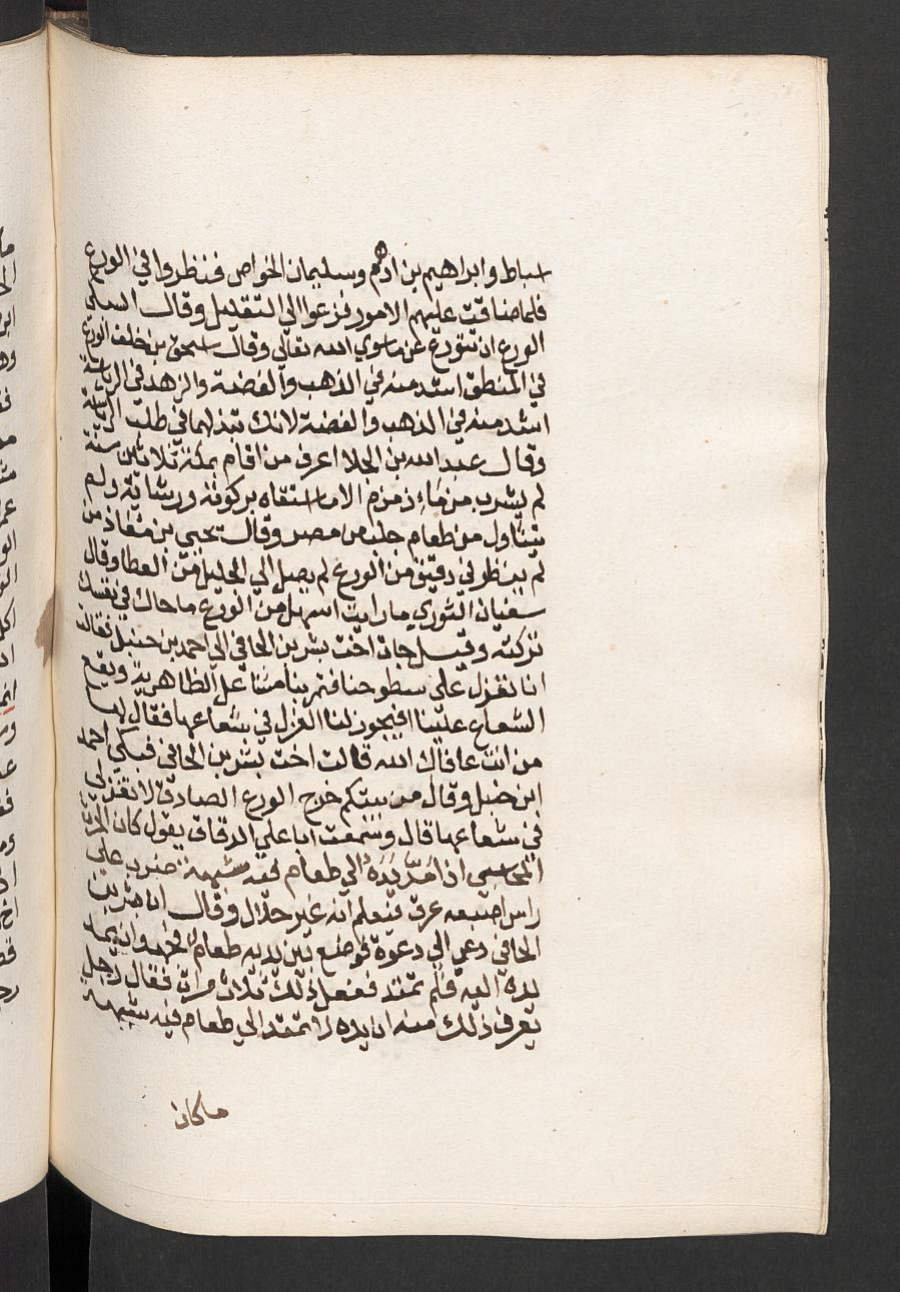 اسباط وابراهيم بن ادهم وسليمان الخواص فنظروا في الورع
فلما ضاقت عليهم الامور فزعوا الي التقليل وقال الشبلي
الورع ان تتورع عن ما سوي الله تعالي وقال اسحق بن خلف الورع
في المنطق اشد منه في الذهب والفضة والزهد في الرياسة
اشد منه في الذهب والفضة لانك تبذلهما في طلب الرياسة
وقال عبد الله بن الجلا اعرف من اقام بمكة ثلاثين سنة
لم يشرب من ماء زمزم الا ما استقاه بركوته ورشايه ولم
يتناول من طعام جلب من مصر وقال يحيي بن معاذ من
لم ينظر في دقيق من الورع لم يصل الي الجليل من العطا وقال
سفيان الثوري ما رايت اسهل من الورع ما حاك في نفسك
تركته وقيل جات اخت بشر بن الحافي الي احمد بن حنبل فقالت
انا نغزل علي سطوحنا فتمر بنا مشاعل الظاهرية ويقع
الشعاع علينا افيجوز لنا الغزل في شعاعها فقال لها
من انت عافاك الله قالت اخت بشر بن الحافي فبكي احمد
ابن حنبل وقال من بيتكم خرج الورع الصادق لا تغزلي
في شعاعها قال وسمعت ابا علي الدقاق يقول كان الحرث
المحاسبي اذا مد يده الي طعام فيه شبهة ضرب علي
راس اصبعه عرق فيعلم انه غير حلال وقال ان بشر بن
الحافي دعي الي دعوة فوضع بين يديه طعام فجهد ان يمد
يده اليه فلم تمتد ففعل ذلك ثلاث مرات فقال رجل
يعرف ذلك منه ان يده لا تمتد الي طعام فيه شبهة
ما كان